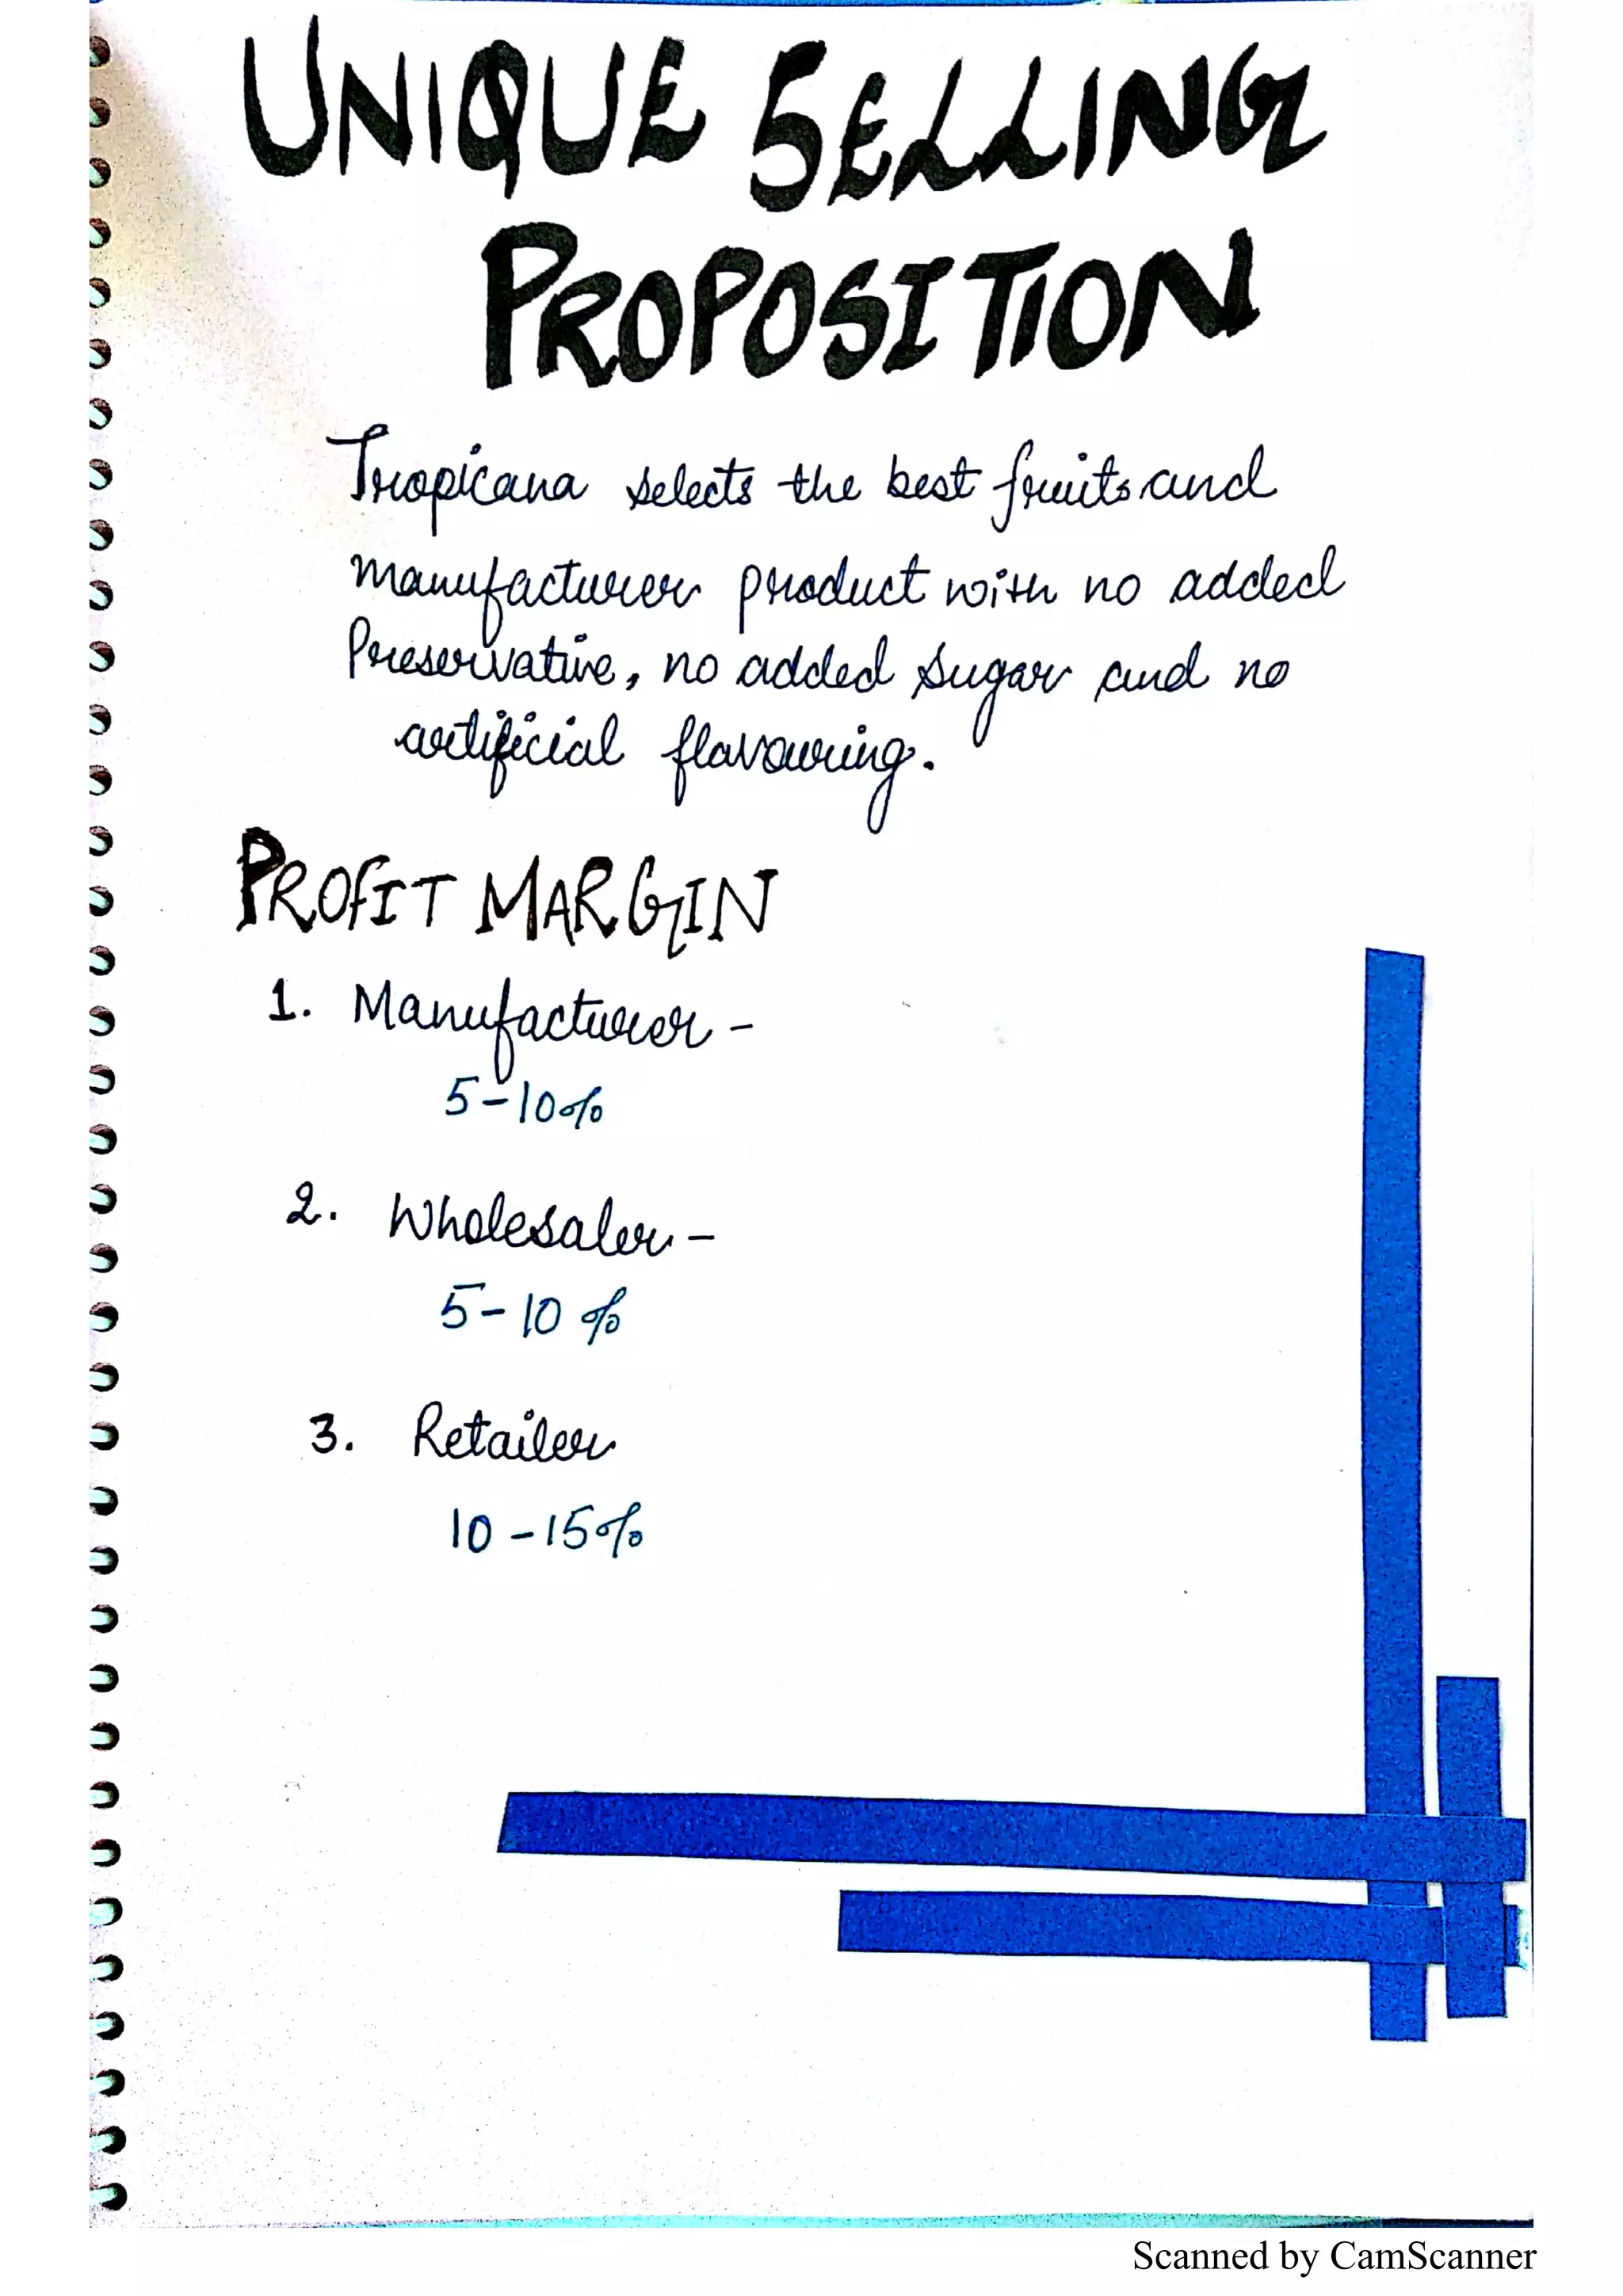 UNIQUE SELLING
PROPOSITION
Tropicana selects the best fruits and
manufacturer product with no added
Preservative, no added sugar and no
artificial flavouring.
PROFIT MARGIN
1. Manufacturer -
5-10%
2. Wholesaler -
5-10%
3. Retailer
10-15%
Scanned by CamScanner